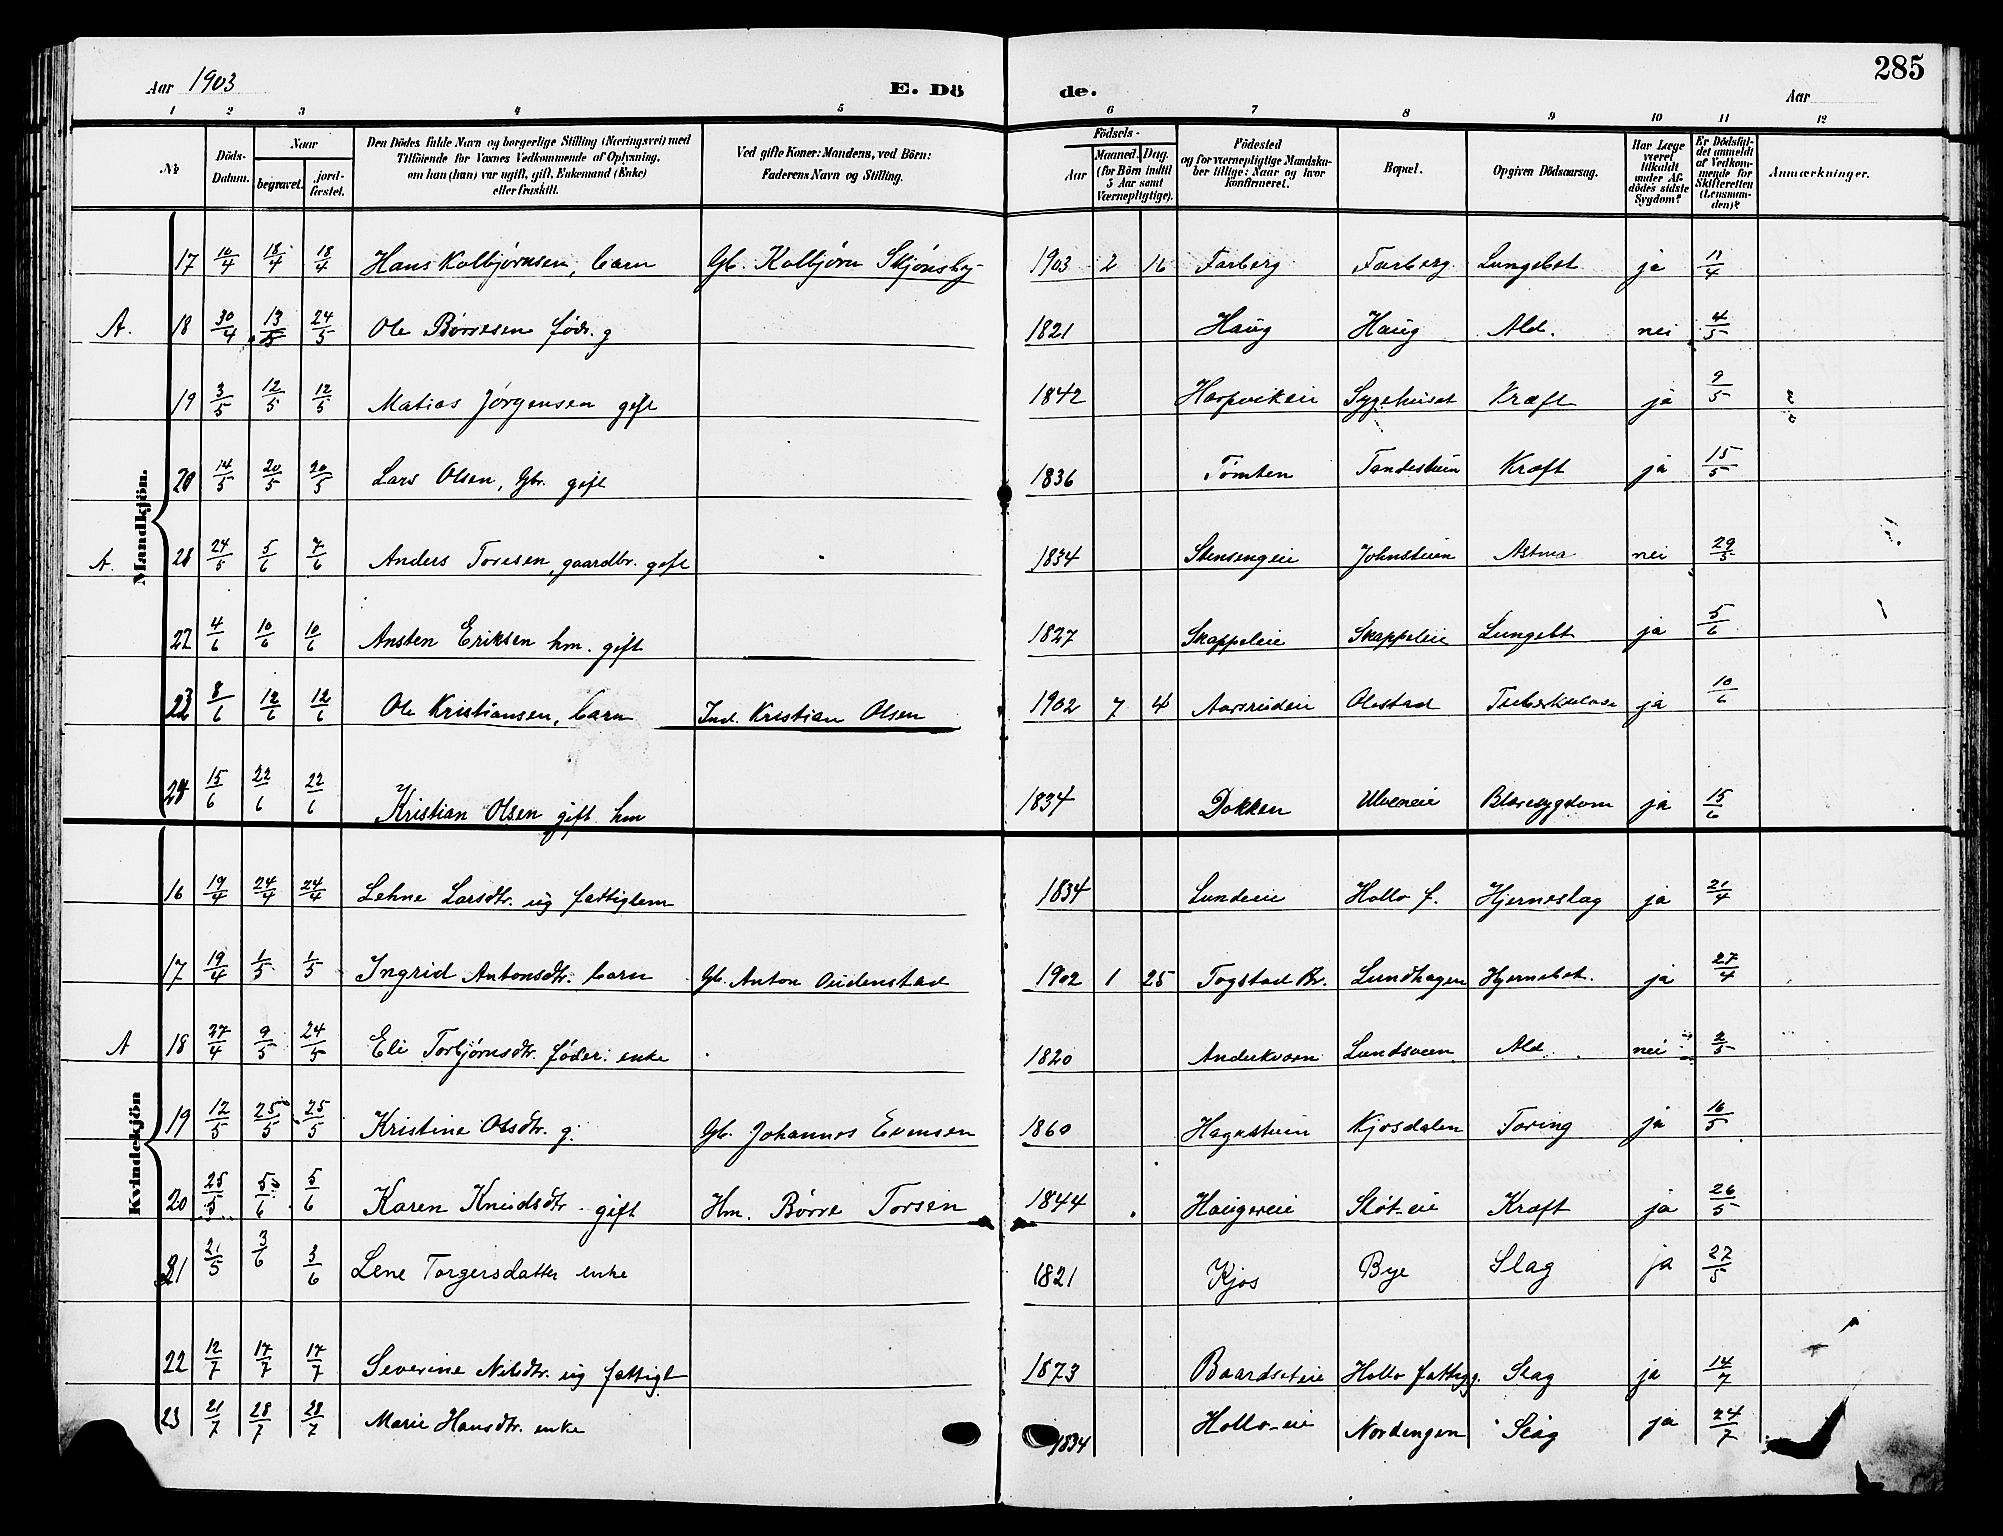 285
Aar 1903 E. Dö de. Aar
1 2 3 4 5 6 7 8 9 10 11 12
No. Döds-Datum. Naar begravet. jord-fæstet. Den Dödes fulde Navn og borgerlige Stilling (Næringsvei) med Tilföiende for Voxnes Vedkommende af Oplysning, om han (hun) var ugift, gift, Enkemand (Enke) eller fraskilt. Ved gifte Koner: Mandens, ved Börn: Faderens Navn og Stilling. Födsels- Aar Maaned. Dag. (for Börn indtil 5 Aar samt Værnepligtige). Födested og for værnepligtige Mandskaber tillige: Naar og hvor konfirmeret. Bopæl. Opgiven Dödsaarsag. Har Læge været tilkaldt under Afdödes sidste Sygdom? Er Dödsfaldet anmeldt af Vedkommende for Skifteretten (Lensmanden)? Anmærkninger.
Mandkjön.
17 18/4 18/4 Hans Kolbjørnsen, barn Gb. Kolbjørn Skjønsby 1903 2 16 Farberg Farberg Lungebet ja 11/4
A. 18 30/4 13/5 24/5 Ole Børresen föds. g 1821 Haug Haug Ald. nei 4/5
19 3/5 12/5 12/5 Matias Jörgensen gift 1842 Harpvikeie Sygehuset Kræft ja 9/5
20 14/5 20/5 20/5 Lars Olsen, Gbr. gift 1836 Tømten Kræft ja 15/5
A. 24/5 5/6 7/6 Anders Toresen, gaardbr. gift 1834 Stensengeie Johnsteien Astma nei 29/5
22 4/6 10/6 10/6 Ansten Eriksen hm. gift 1827 Skappeleie Skappeleie Lungebt ja 5/6
23 8/6 12/6 12/6 Ole Kristiansen, barn Ind. Kristian Olsen 1902 7 4 Aarsrudeie Olestad Tuberkulose ja 10/6
24 15/6 22/6 22/6 Kristian Olsen gift hm 1834 Dokken Ulveneie Blæresygdom ja 15/6
Kvindekjön
16 19/4 24/4 24/4 Lehne Larsdtr. ug fattiglem 1834 Lundeie Hollo f. Hjerneslag ja 21/4
17 19/4 1/5 1/5 Ingrid Antonsdtr. barn Gb. Anton Oudenstad 1902 1 25 Togstad Br. Lundhagen Hjernebet. ja 27/4
A 18 27/4 9/5 24/5 Eli Torbjørnsdtr. föder. enke 1820 Anderkværn Lundsveen Ald. nei 2/5
19 12/5 25/5 25/5 Kristine Olsdtr. g. Gb. Johannes Evensen 1860 Hagasteien Kjosdalen Tæring ja 16/5
20 25/5 5/6 5/6 Karen Knudsdtr gift Hm. Børre Torsen 1844 Haugereie Slöt-eie Kræft ja 26/5
21 21/5 3/6 3/6 Lene Torgersdatter enke 1821 Kjos Bye Slag ja 27/5
22 12/7 17/7 17/7 Severine Nilsdtr. ug fattigl 1873 Baardseteie Hollo fattigg. Slag ja 14/7
23 21/7 28/7 28/7 Marie Hansdtr. enke 1834 Hollo-eie Nordengen Slag ja 24/7